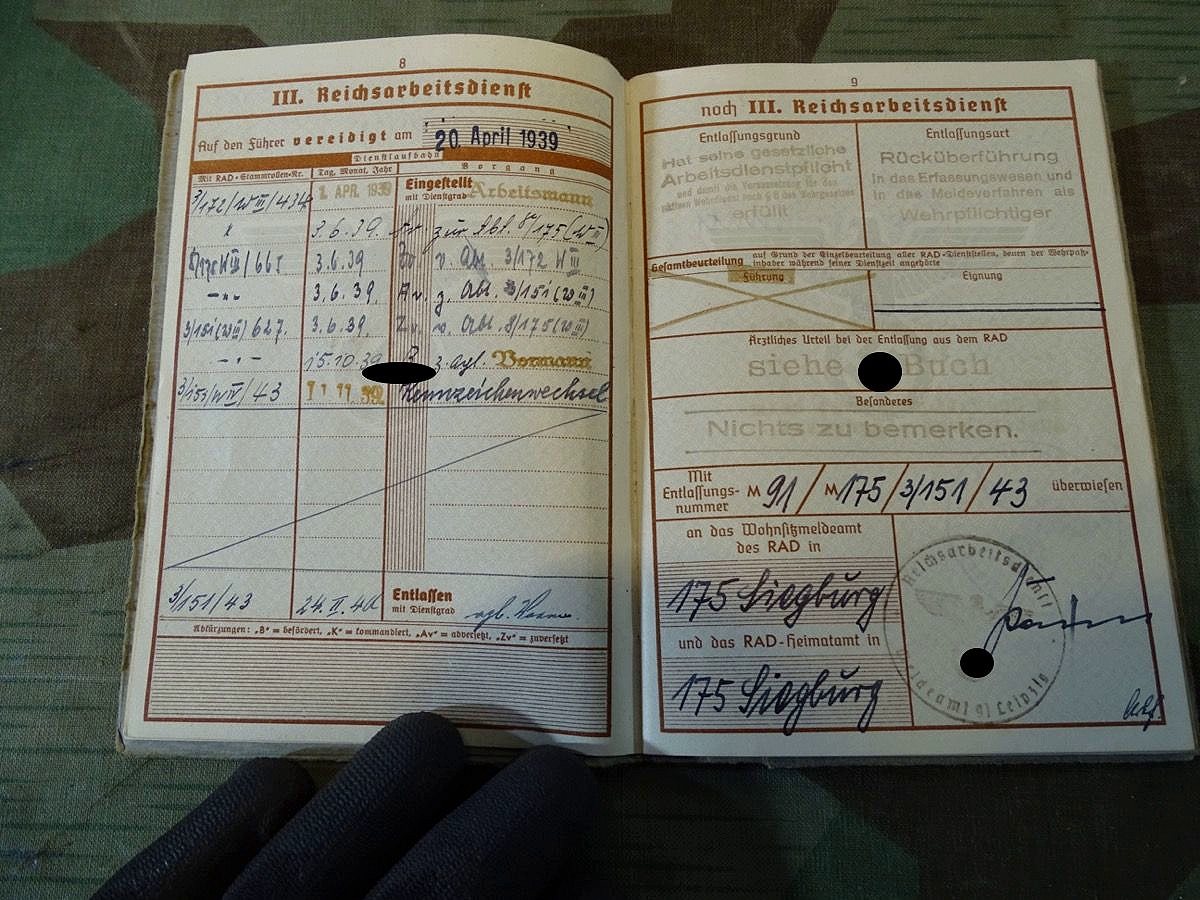 8
III. Reichsarbeitsdienst
Auf den Führer vereidigt am 20. April 1939
Dienstlaufbahn
Mit RAD-Stammrollen-Nr. Tag, Monat, Jahr Vorgang
3/172/W III/434 1. APR. 1939 Eingestellt mit Dienstgrad Arbeitsmann
3.6.39. Av zur Abt. 8/175 (W III)
8/175 W III/665 3.6.39 Zv v. Abt. 3/172 W III
-"- 3.6.39. Av. z. Abt. 3/151 (W III)
3/151 (W III) 627. 3.6.39. Zv. v. Abt. 8/175 (W III)
-"- 15.10.39 B z. apl. Vormann
3/151/W IV/43 Kennzeichenwechsel
3/151/43 24.II.40 Entlassen
mit Dienstgrad
Abkürzungen: „B“ = befördert, „K“ = kommandiert, „Av“ = adversetzt, „Zv“ = zuversetzt
9
noch III. Reichsarbeitsdienst
Entlassungsgrund
Hat seine gesetzliche
Arbeitsdienstpflicht
und damit die Voraussetzung für den
aktiven Wehrdienst nach § 8 des Wehrgesetzes
erfüllt
Entlassungsart
Rücküberführung
in das Erfassungswesen und
in das Meldeverfahren als
Wehrpflichtiger
Gesamtbeurteilung auf Grund der Einzelbeurteilung aller RAD-Dienststellen, denen der Wehrpaß-
inhaber während seiner Dienstzeit angehörte
Führung
Eignung
Ärztliches Urteil bei der Entlassung aus dem RAD
siehe Buch
Besonderes
Nichts zu bemerken.
Mit
Entlassungs-
nummer M 91/M175/3/151/43 überwiesen
an das Wohnsitzmeldeamt
des RAD in
175 Siegburg
und das RAD-Heimatamt in
175 Siegburg
Reichsarbeitsdienst
Meldeamt 91 Leipzig